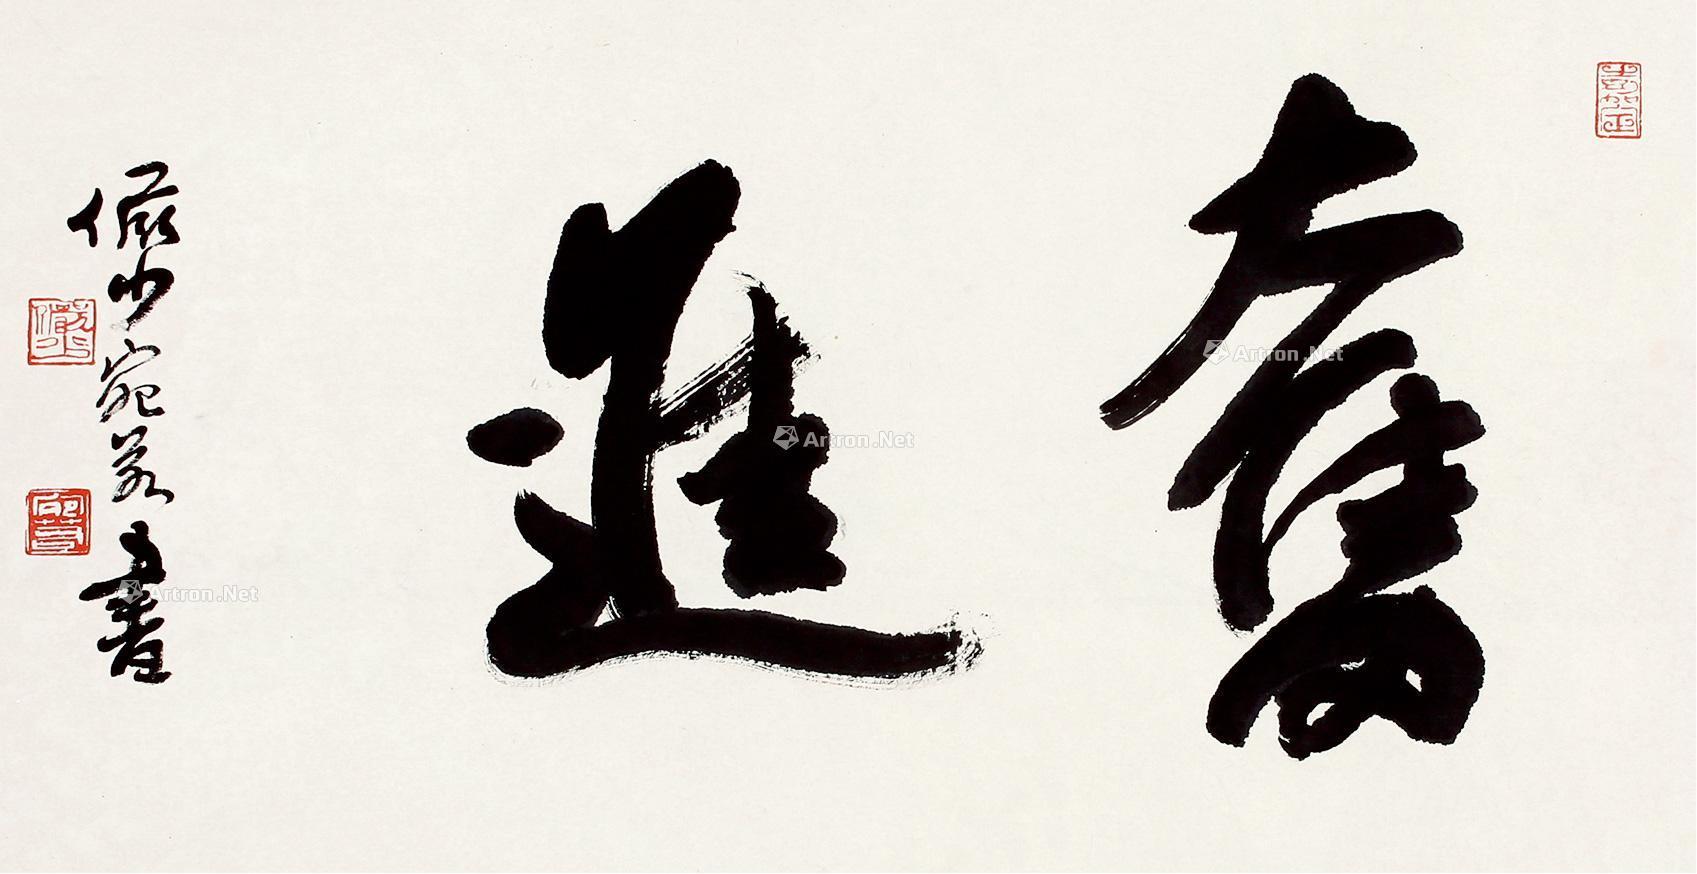 奮進
儼少宛若書
Artron.Net
Artron.Net
Artron.Net